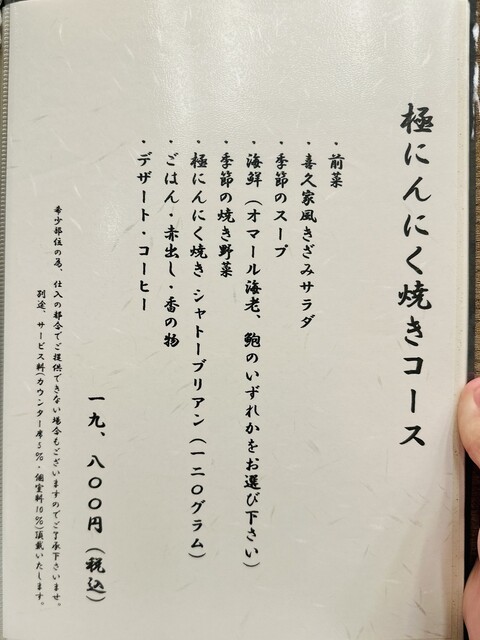 極にんにく焼きコース
・前菜
・喜久家風きざみサラダ
・季節のスープ
・海鮮(オマール海老、鮑のいずれかをお選び下さい)
・季節の焼き野菜
・極にんにく焼き シャトーブリアン(一二〇グラム)
・ごはん・赤出し・香の物
・デザート・コーヒー
一九、八〇〇円(税込)
希少部位の為、仕入の都合でご提供できない場合もございますのでご了承下さいませ。
別途、サービス料(カウンター席5%・個室料10%)頂戴いたします。